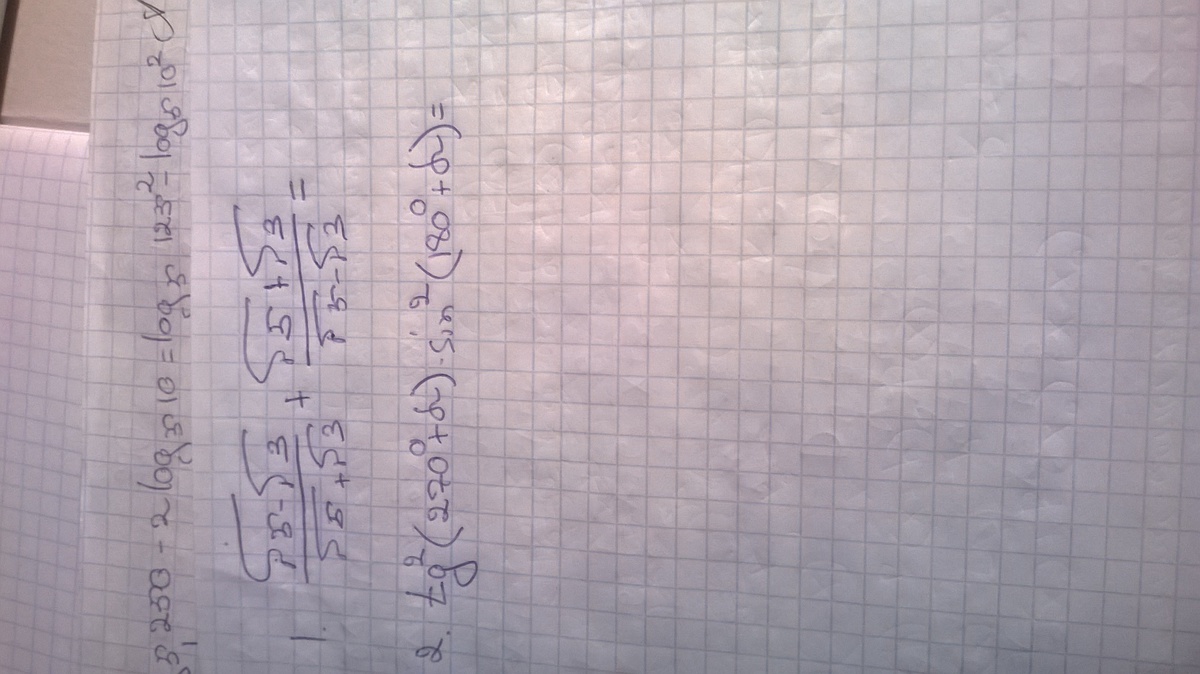 250 - 2 log₅ 10 = log₅ 125² - log₅ 10²
1. (√5 - √3)/(√5 + √3) + (√5 + √3)/(√5 - √3) =
2. tg²(270° + α) · sin²(180° + α) =